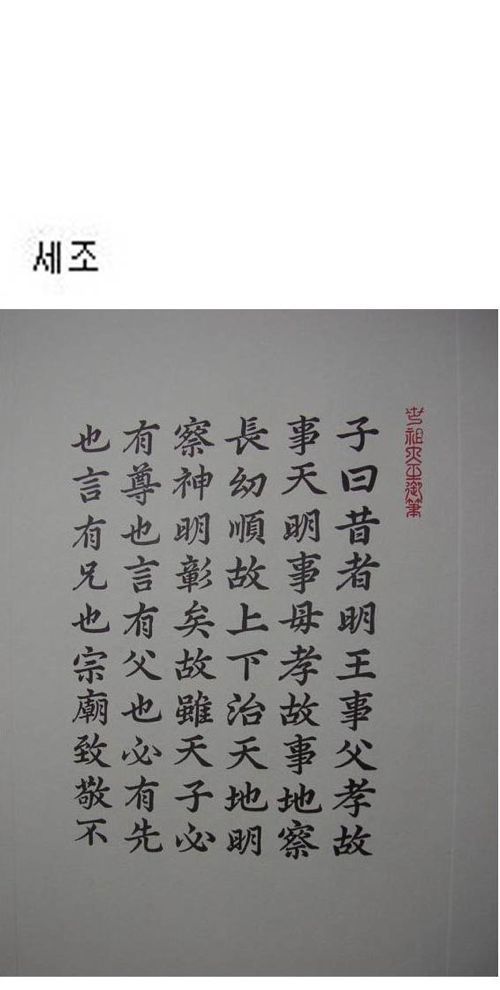 세조
世祖大王御筆
子曰昔者明王事父孝故
事天明事母孝故事地察
長幼順故上下治天地明
察神明彰矣故雖天子必
有尊也言有父也必有先
也言有兄也宗廟致敬不